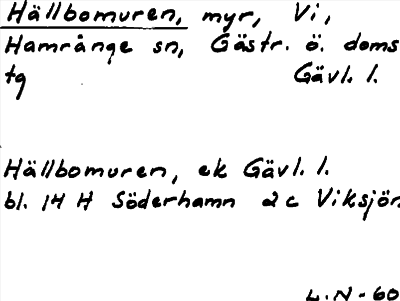 Hällbomuren, myr, Vi,
Hamrånge sn, Gästr. ö. doms
tg Gävl. l.
Hällbomuren, ek Gävl. l.
bl. 14 H Söderhamn 2c Viksjön
L.N-60